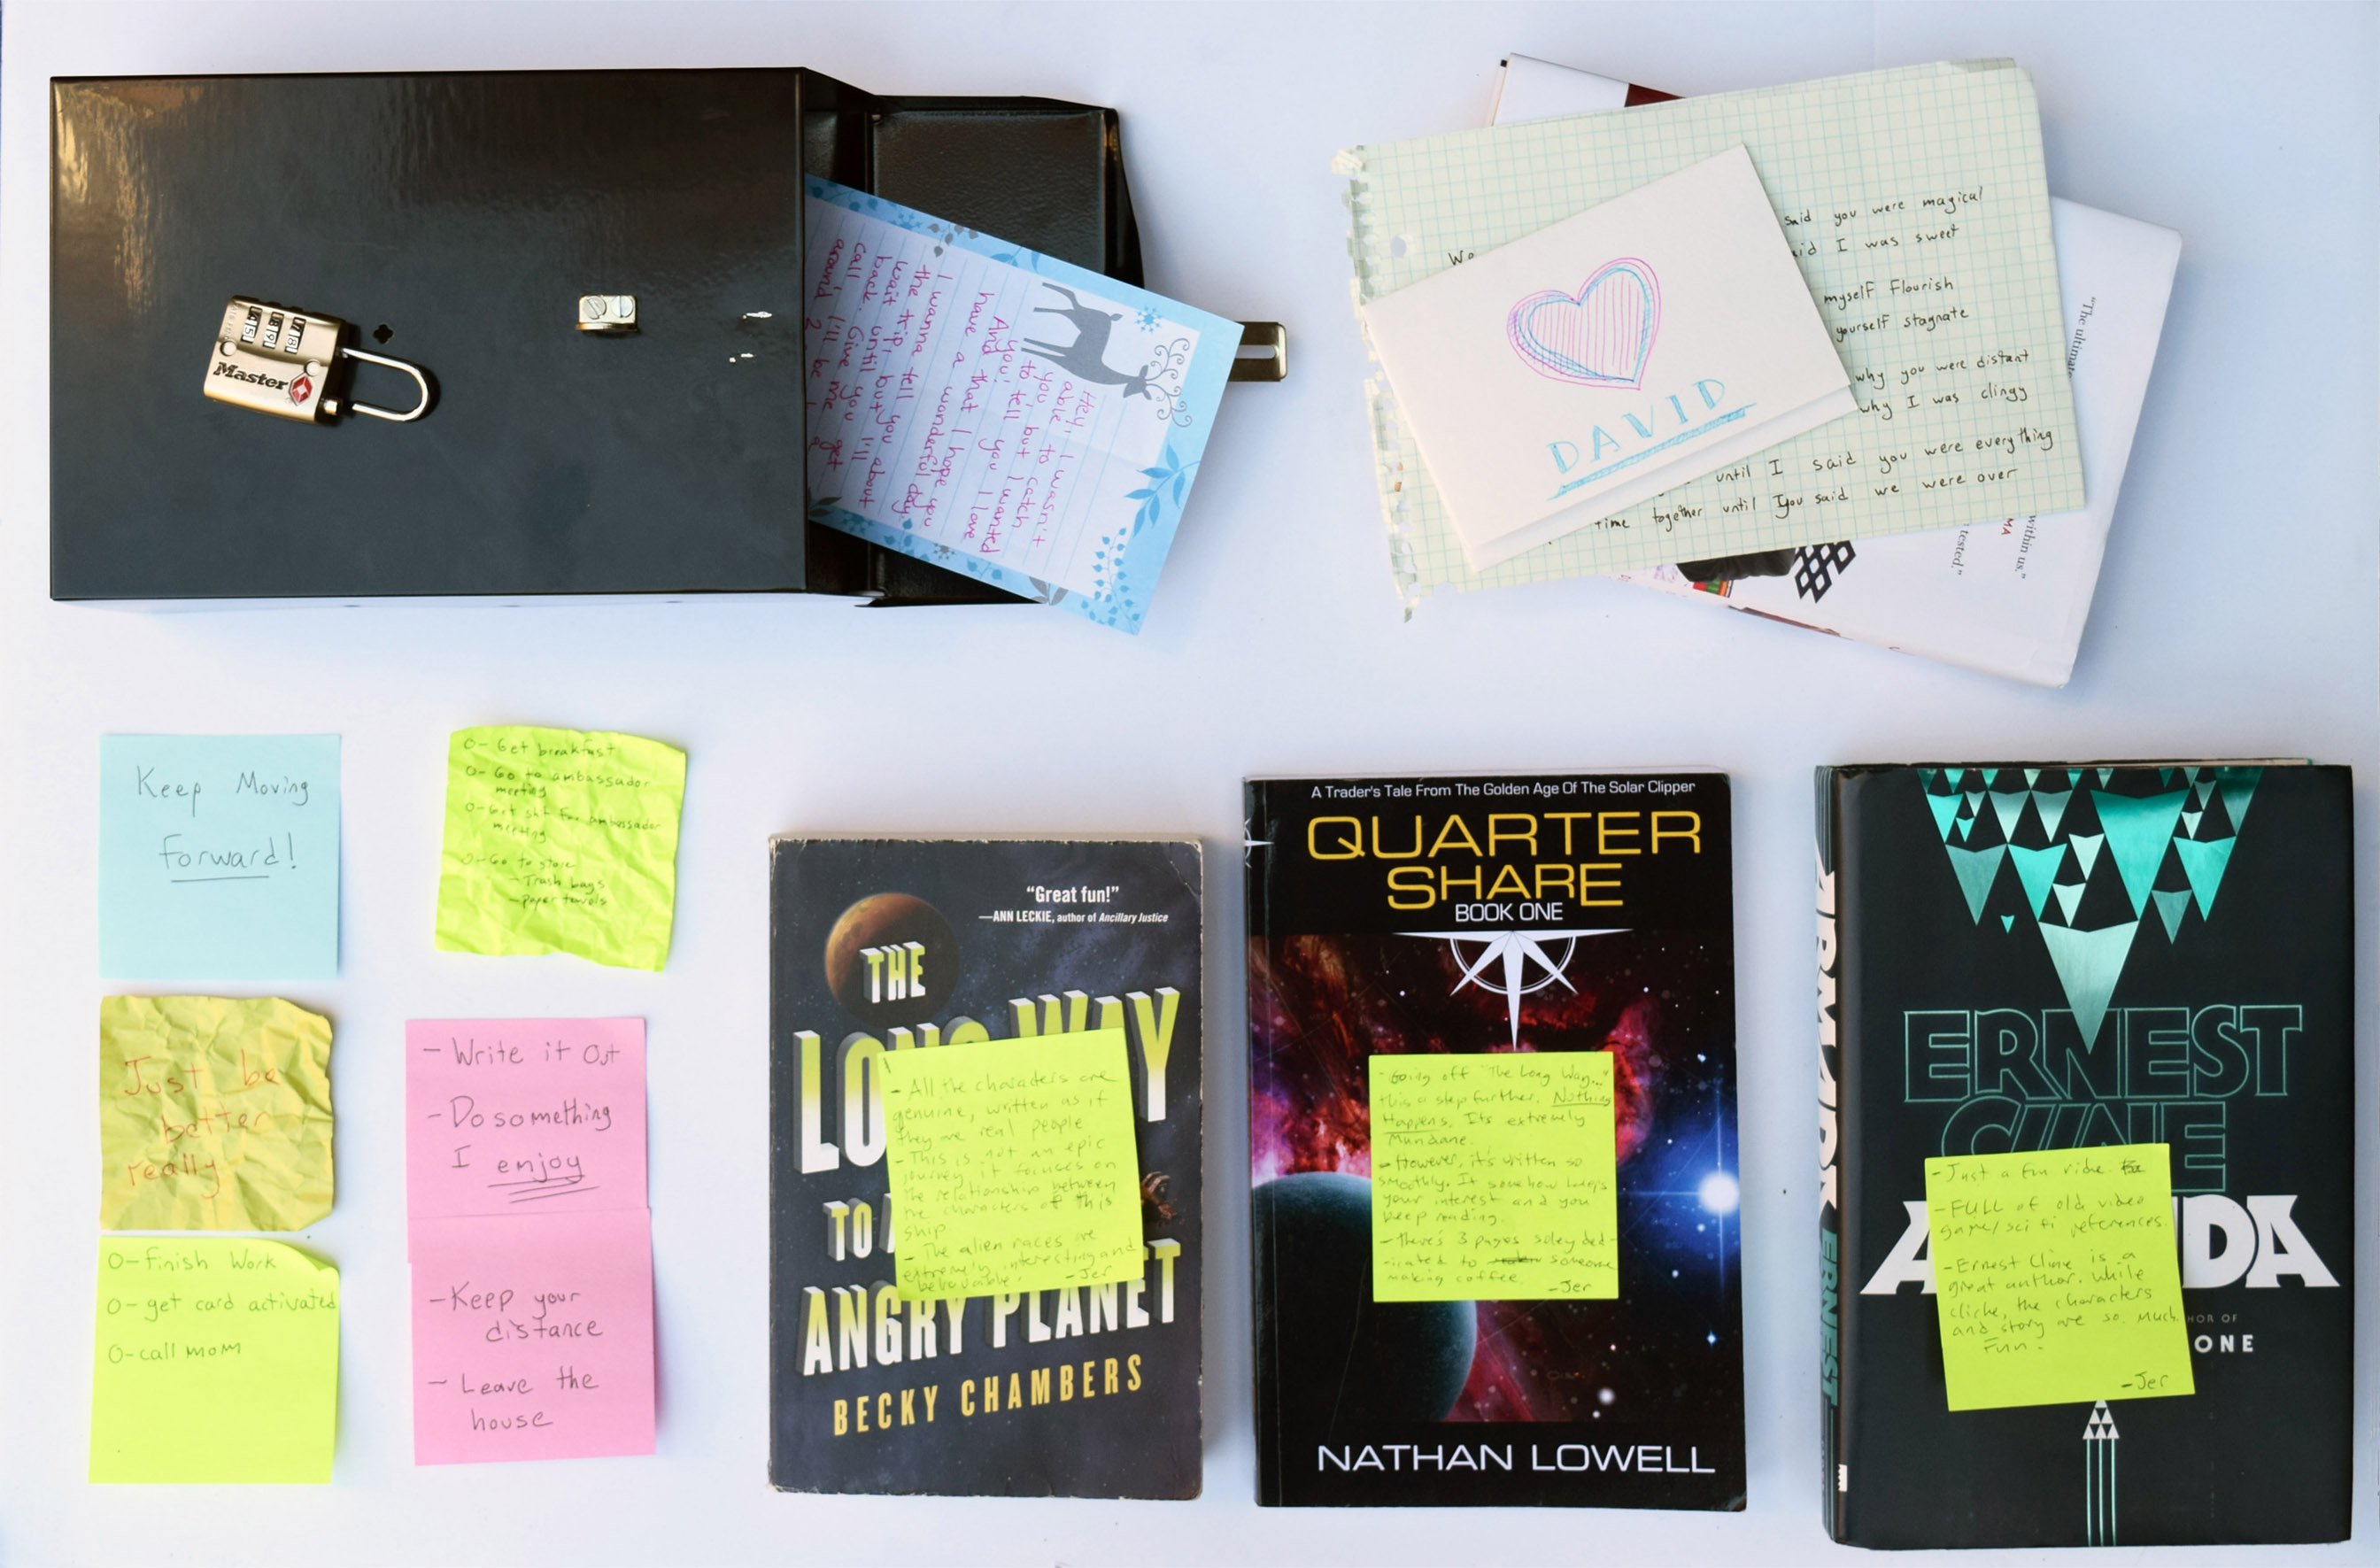 Master
Hey, I wasn't
able to catch
you, but I wanted
to tell you I love
you!
And that I hope you
have a wonderful day.
I wanna tell you about
the trip, but I'll
wait until you get
back. Give me a
call, I'll be
around 2
DAVID
We
said you were magical
said I was sweet
myself flourish
yourself stagnate
why you were distant
why I was clingy
until I said you were everything
time together until You said we were over
"The ultimate
within us."
MA
tested."
Keep Moving
forward!
O- Get breakfast
O- Go to ambassador
meeting
O- Get sht for ambassador
meeting
O- Go to store
- Trash bags
- paper towels
Just be
better
really
- Write it Out
- Do something
I enjoy
O- Finish Work
O- get card activated
O- call mom
- Keep your
distance
- Leave the
house
"Great fun!"
—ANN LECKIE, author of Ancillary Justice
THE
LONG WAY
TO A
ANGRY PLANET
BECKY CHAMBERS
- All the characters are
genuine, written as if
they are real people
- This is not an epic
journey, it focuses on
the relationship between
the characters of this
ship
- The alien races are
extremely interesting and
believable.
-Jer
A Trader's Tale From The Golden Age Of The Solar Clipper
QUARTER
SHARE
BOOK ONE
- Going off "The Long Way..."
this a step further. Nothing
Happens. Its extremely
Mundane.
- However, it's written so
smoothly. It somehow keeps
your interest and you
keep reading.
- There's 3 pages soley ded-
icated to someone
making coffee.
-Jer
NATHAN LOWELL
ARMADA ERNEST
ERNEST
CLINE
A DA
HOR OF
ONE
- Just a fun ride.
- FULL of old video
game/sci fi references.
- Ernest Cline is a
great author. While
cliche, the characters
and story are so much
Fun.
-Jer